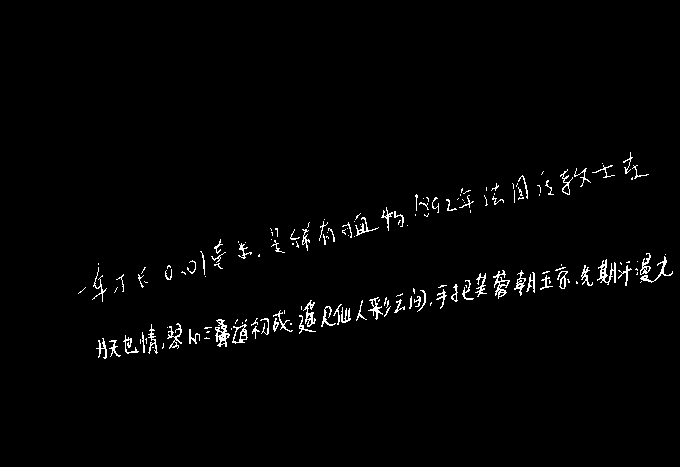 一年才长0.01毫米,是稀有植物.1892年法国传教士在
肤世情,琴心三叠道初成.遥见仙人彩云间,手把芙蓉朝玉京.先期汗漫九